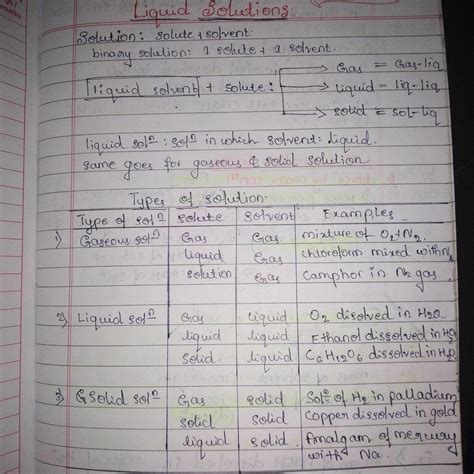 Liquid Solutions:
Solution: solute + solvent.
binary solution: 1 solute + 1 solvent.
Gas = Gas-liq
liquid solvent + solute: liquid = liq-liq
solid = sol-liq
liquid solⁿ: solⁿ in which solvent = liquid.
same goes for gaseous & solid solution
Types of solution
Type of solⁿ solute solvent Examples
1) Gaseous solⁿ Gas Gas mixture of O2+N2.
liquid Gas chloroform mixed with N2
solution Gas Camphor in N2 gas.
2) Liquid solⁿ Gas liquid O2 disolved in H2O
liquid liquid Ethanol dissolved in H2O
Solid liquid C6H12O6 dissolved in H2O
3) Solid solⁿ Gas solid Solⁿ of H2 in palladium
solid solid Copper dissolved in gold
liquid solid Amalgam of mercury
with Na.